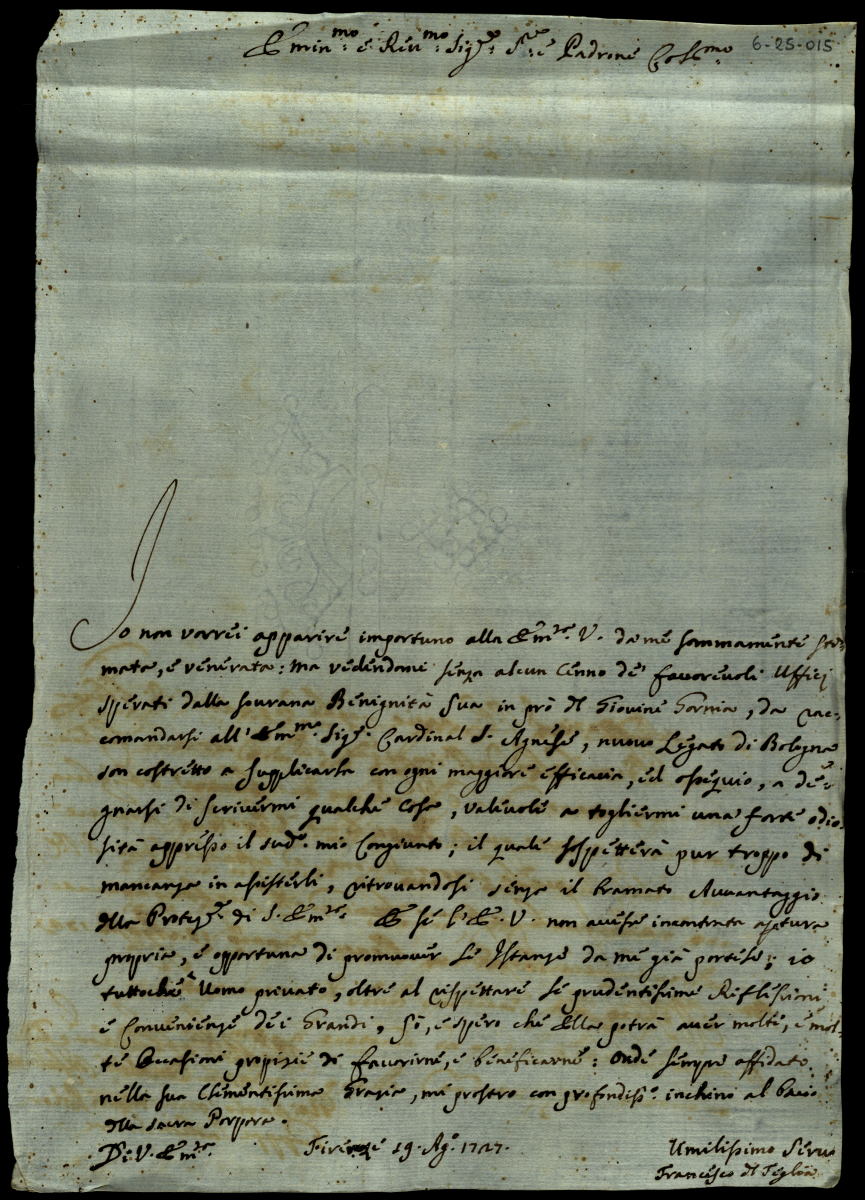 Emin:mo e Rev:mo Sig:re S:re e Padrone Col:mo 6-25-015
Io non vorrei apparire importuno alla Em:za V. da me sommamente sti-
mata, e venerata: ma vedendomi senza alcun Cenno de' favorevoli Uffizj
sperati dalla sovrana Benignità sua in prò del Giovine Gornia, da rac-
comandarsi all' Em:mo Sig:r Cardinal S. Agnese, nuovo Legato di Bologna
son costretto a supplicarla con ogni maggiore efficacia, ed ossequio, a de-
gnarsi di scrivermi qualche cosa, valevole a togliermi una forte odio-
sità appresso il sud:o mio Congiunto; il quale sospetterà pur troppo di
mancanza in assisterli, ritrovandosi senza il bramato Avvantaggio
della Protez:e di S. Em:za E se l'E. V. non avesse incontrata apertura
propria, e opportuna di promuover le Istanze da me già portele; io
tuttoche Uomo privato, oltre al rispettare le prudentissime Riflessioni
e Convenienze dei Grandi, sò, e spero che Ella potrà aver molte, e mol-
te Occasioni propizie di favorirne, e beneficarne: Onde sempre affidato
nella sua Clementissima Grazia, mi prostro con profondiss:o inchino al bacio
della sacra Porpora.
Di V. Em:za Firenze 19. Ag:o 1727. Umilissimo Servo
Francesco del Teglia